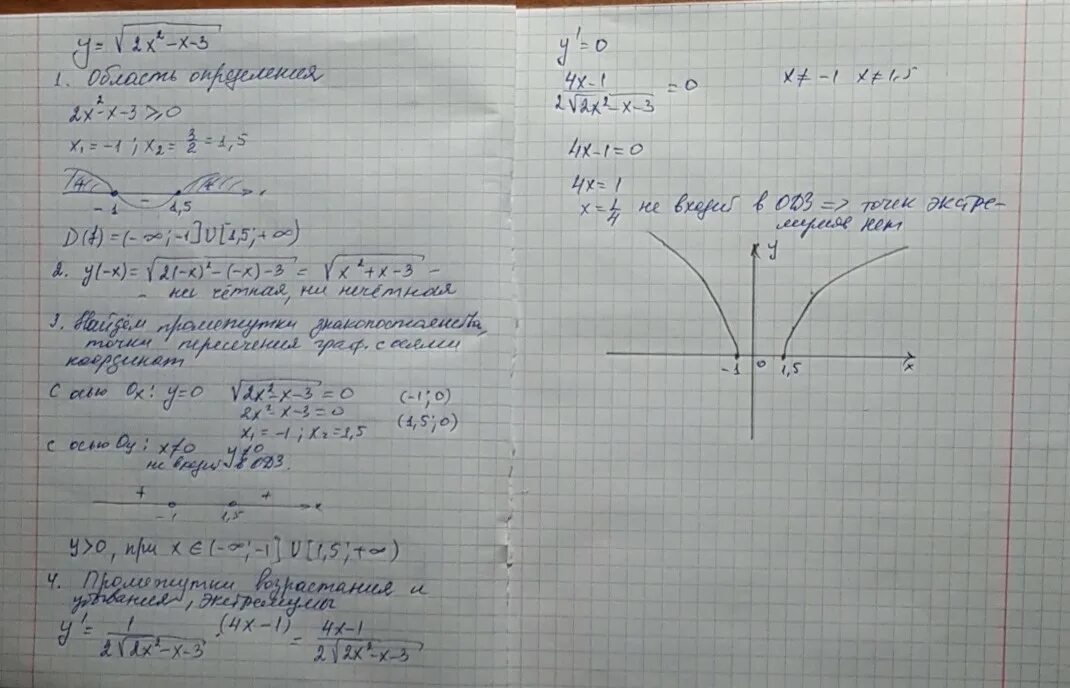 y = √(2x² - x - 3)
1. Область определения
2x² - x - 3 ≥ 0
x₁ = -1 ; x₂ = 3/2 = 1,5
-
-1 1,5
D(f) = (-∞; -1] U [1,5; +∞)
2. y(-x) = √(2(-x)² - (-x) - 3) = √(x² + x - 3) -
- ни чётная, ни нечётная
3. Найдём промежутки знакопостоянства,
точки пересечения граф. с осями
координат
С осью Ox: y = 0 √(2x² - x - 3) = 0 (-1; 0)
2x² - x - 3 = 0
x₁ = -1 ; x₂ = 1,5 (1,5; 0)
с осью Oy: x ≠ 0 y ≠ 0
не входит в ОДЗ.
+ +
-1 1,5 x
y > 0, при x ∈ (-∞; -1] U [1,5; +∞)
4. Промежутки возрастания и
убывания, экстремумы
y' = 1/(2√(2x² - x - 3)) · (4x - 1) = (4x - 1)/(2√(2x² - x - 3))
y' = 0
(4x - 1)/(2√(2x² - x - 3)) = 0 x ≠ -1 x ≠ 1,5
4x - 1 = 0
4x = 1
x = 1/4 не входит в ОДЗ => точек экстре-
мумов нет
y
-1 0 1,5 x